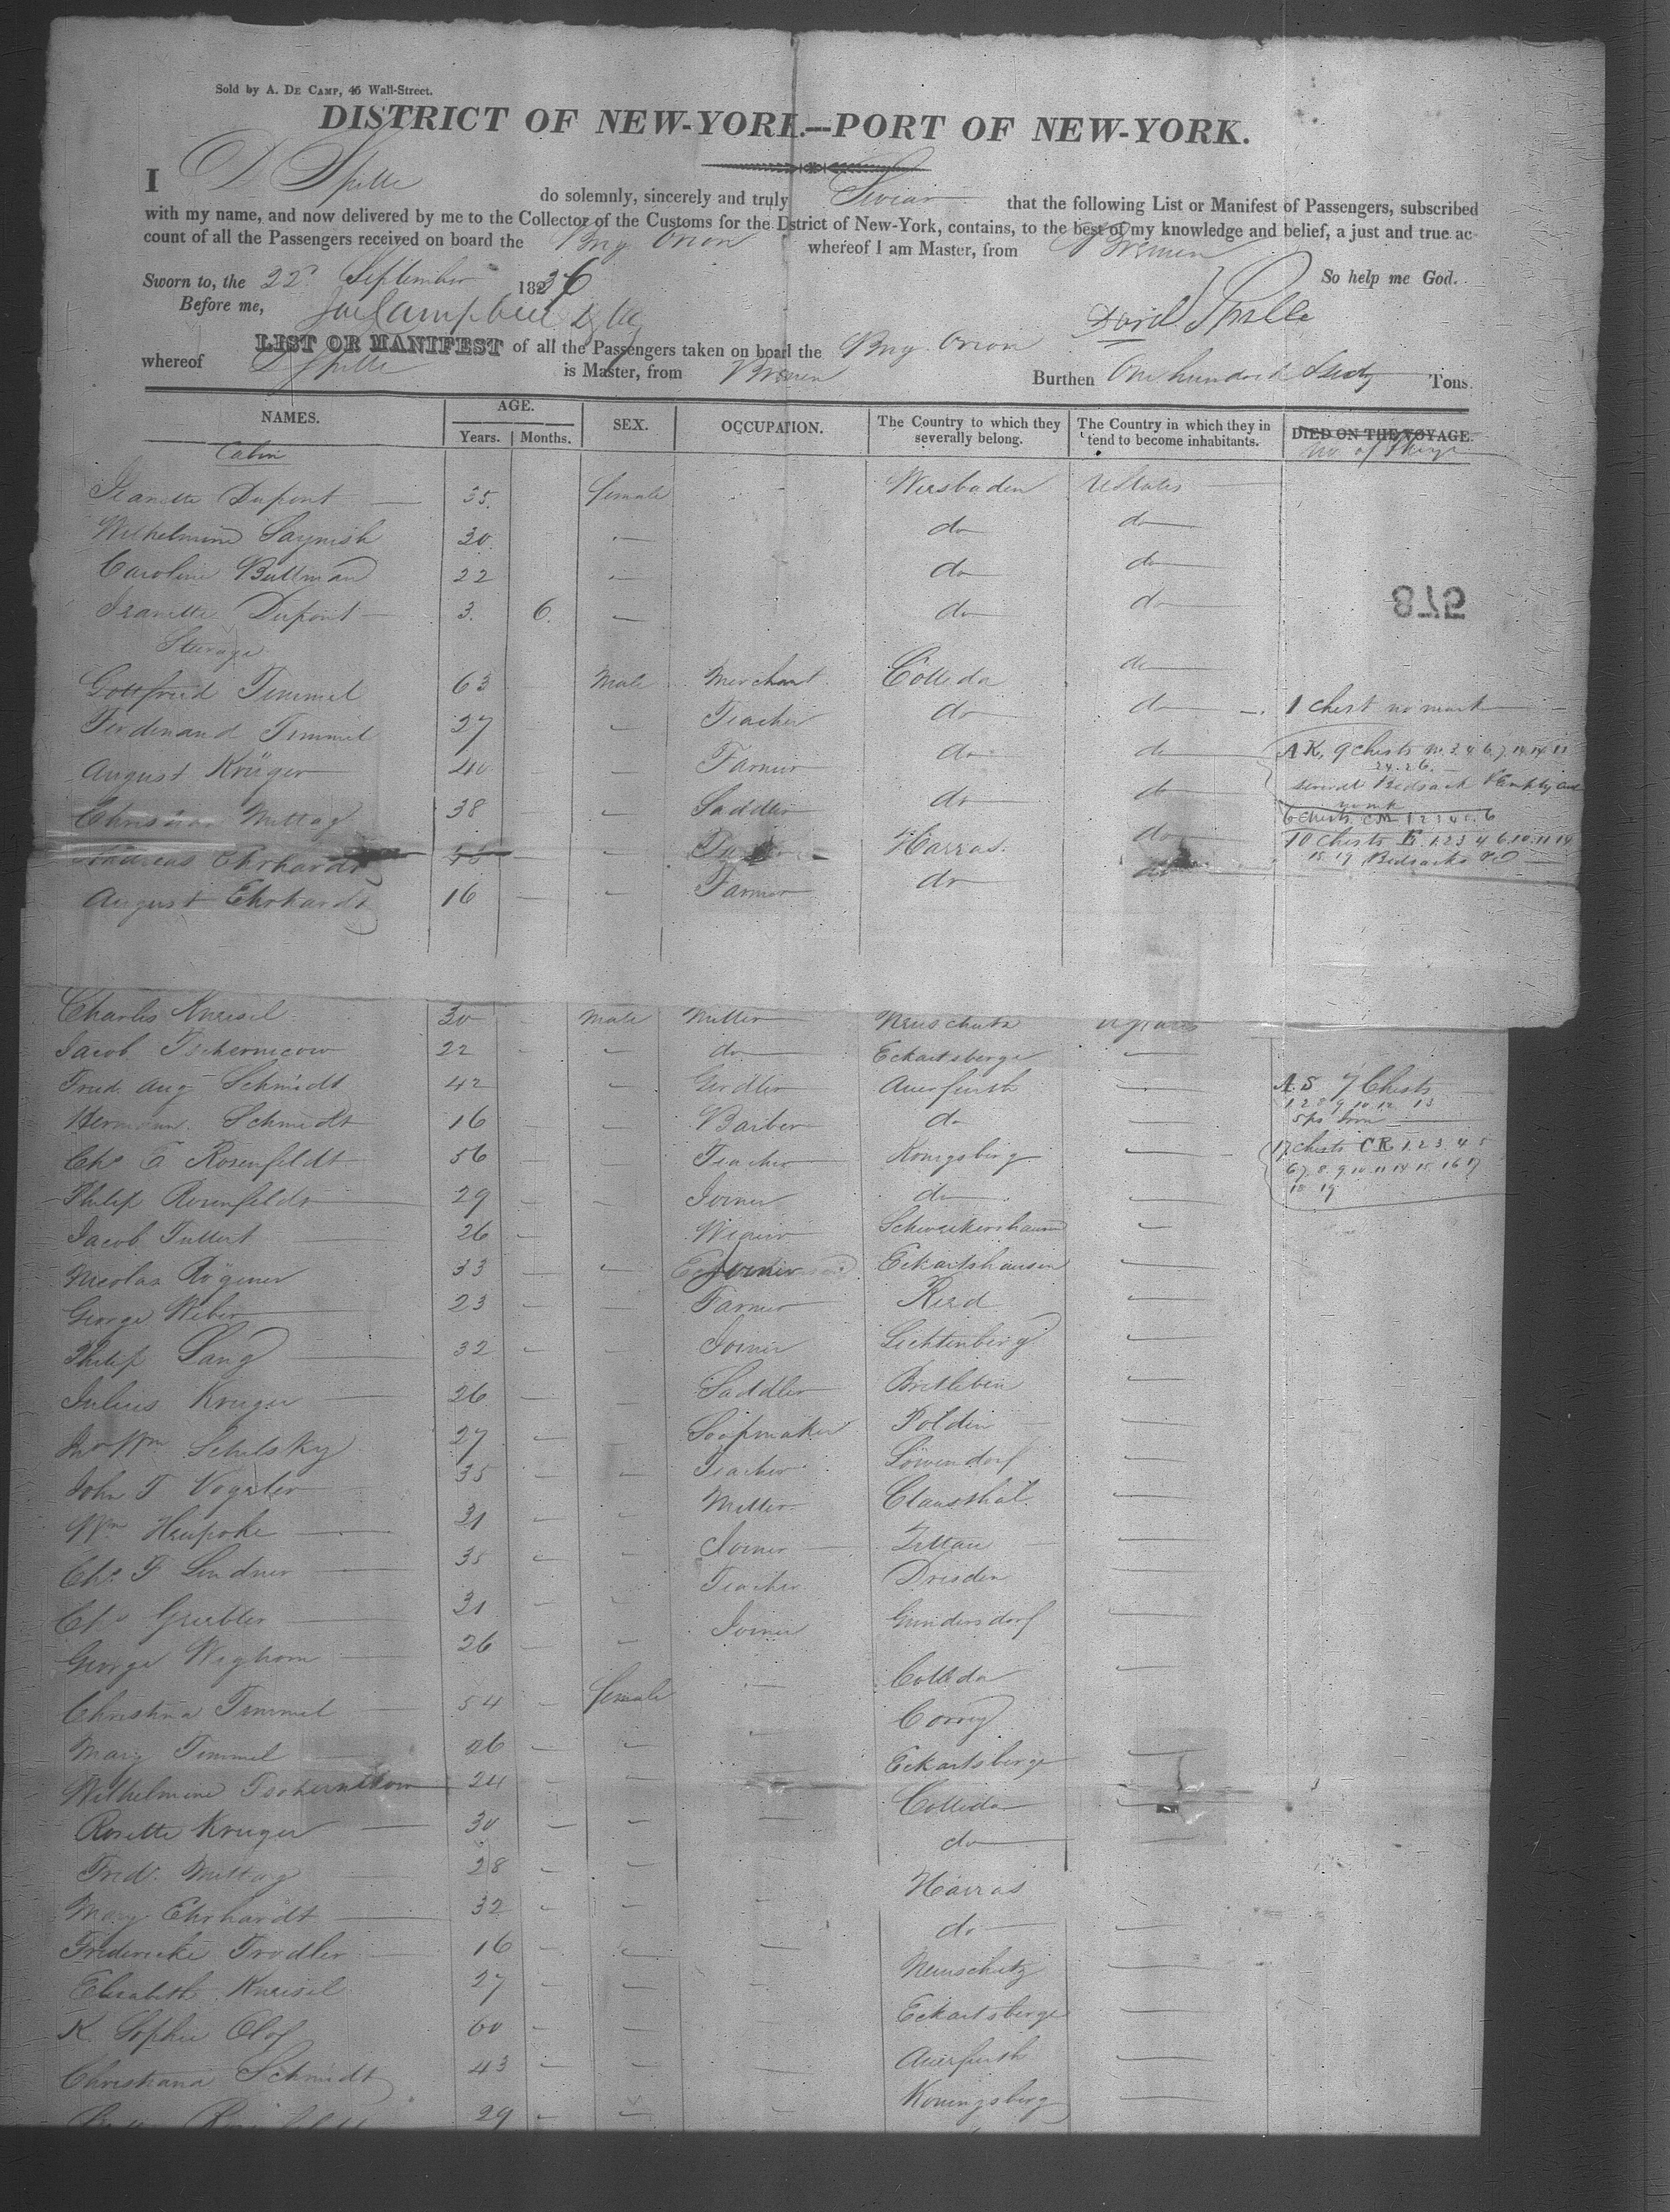 Sold by A. DE CAMP, 46 Wall-Street.
DISTRICT OF NEW-YORK.--PORT OF NEW-YORK.
I D Spille do solemnly, sincerely and truly Swear that the following List or Manifest of Passengers, subscribed
with my name, and now delivered by me to the Collector of the Customs for the District of New-York, contains, to the best of my knowledge and belief, a just and true ac-
count of all the Passengers received on board the Brig Orion whereof I am Master, from Bremen
Sworn to, the 22d September 1836 So help me God.
Before me, Campbell
LIST OR MANIFEST of all the Passengers taken on board the Brig Orion
whereof D Spille is Master, from Bremen Burthen One hundred Tons.
NAMES. AGE. Years. Months. SEX. OCCUPATION. The Country to which they severally belong. The Country in which they in tend to become inhabitants. DIED ON THE VOYAGE.
Cabin
Jeanette Dupont 35 female Wiesbaden U States
Wilhelmine Saynish 30 do do
Caroline Bultman 22 do do
Jeanette Dupont 3 6 do do
978
Steerage
Gottfried Timmel 63 Male Merchant Colleda do
Ferdinand Timmel 27 Teacher do do 1 chest no mark
August Krüger 40 Farmer do do A K, 9 Chests
24. 26.
Christian Mittag 38 Saddler do do 6 Chests CM 1 2 3 4 5 6
Andreas Ehrhardt Harras do 10 Chests E. 1 2 3 4 6 10 11 14
Bedsacks
August Ehrhardt 16 Farmer do do
Charles Kneisel 30 Male Miller Neuschutz U States
Jacob Tschernicow 22 do Eckartsberge
Fried. Aug Schmidt 42 Girdler Auerfurth A. S 7 Chests
1 2 8 9 10 12 13
Hermann Schmidt 16 Barber do
Chs E Rosenfeldt 56 Teacher Konigsberg 17 Chests CR 1 2 3 4 5
6 7 8 9 10 11 14 15 16 17
18 19
Philip Rosenfeldt 29 Joiner do
Jacob Tullert 26 Weaver Schweikershausen
Nicolas Rögener 33 Joiner Eckartshausen
George Weber 23 Farmer Ried
Philip Lang 32 Joiner Lichtenberg
Julius Kruger 26 Saddler Britleben
Jno Wm Schilsky 27 Soapmaker Poldin
John T Vogeler 35 Teacher Löwendorf
Wm Heupoke 31 Miller Clausthal
Chs F Lindner 35 Joiner Zittau
Chs Griebler 31 Teacher Dresden
George Weghorn 26 Joiner Gundersdorf
Christina Timmel 54 female Colleda
Mary Timmel 26 Correy
Wilhelmine Tschernikow 24 Eckartsberge
Rosette Kruger 30 Colleda
Fred. Mittag 28 do
Mary Ehrhardt 32 Harras
Fredericke Trodler 16 do
Elisabeth Kneisel 27 Neuschutz
K. Sophie Olof 60 Eckartsberge
Christiana Schmidt 43 Auerfurth
29 Koningsberg